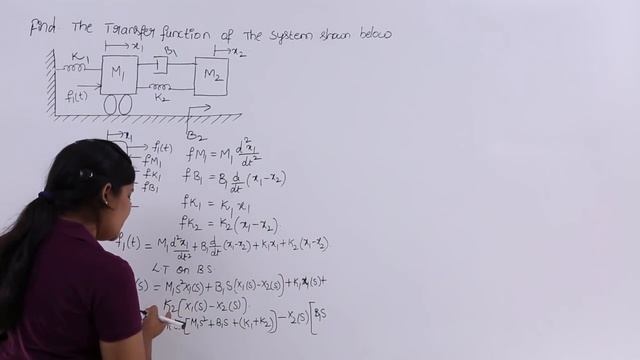 Find The Transfer function of The System shown below
x1 B1 x2
K1 M1 M2
f1(t) K2
B2
x1
f1(t) fM1 = M1 d²x1/dt²
fM1
fK1 fB1 = B1 d/dt (x1-x2)
fB1
fK1 = K1 x1
fK2 = K2 (x1-x2)
f1(t) = M1 d²x1/dt² + B1 d/dt (x1-x2) + K1x1 + K2 (x1-x2)
LT on BS
(s) = M1s²X1(s) + B1S(X1(s)-X2(s)) + K1X1(s)+
K2[X1(s)-X2(s)]
[M1s² + B1s + (K1+K2)] - X2(s)[B1s